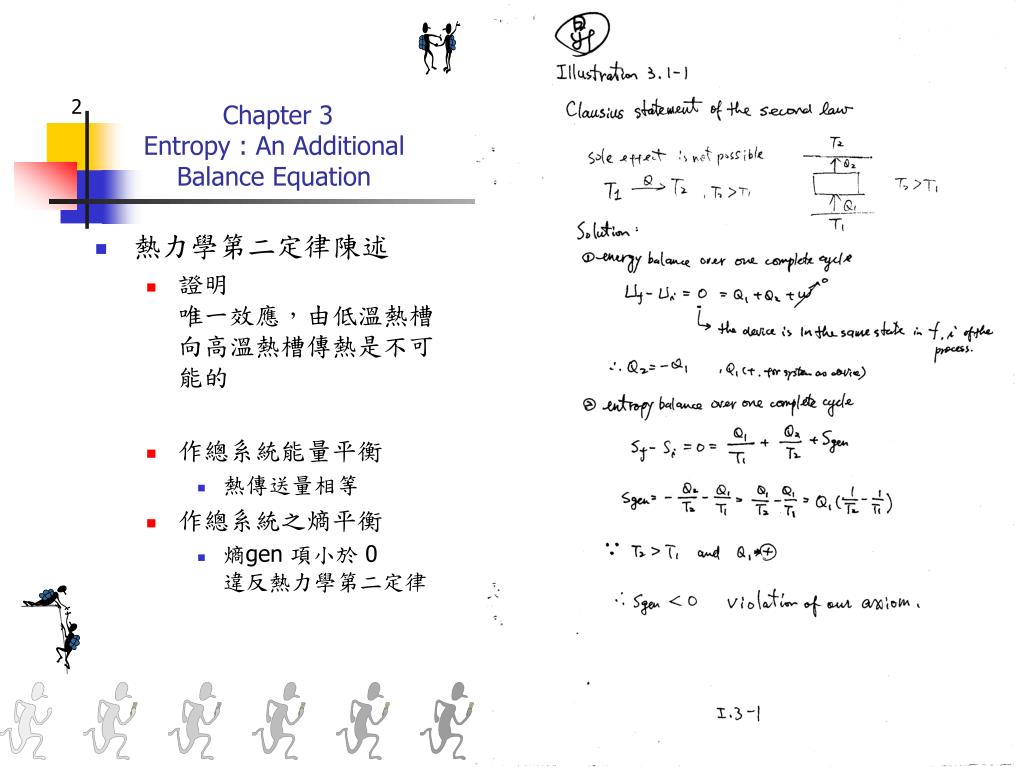 2
Chapter 3
Entropy : An Additional
Balance Equation
熱力學第二定律陳述
證明
唯一效應，由低溫熱槽
向高溫熱槽傳熱是不可
能的
作總系統能量平衡
熱傳送量相等
作總系統之熵平衡
熵gen 項小於 0
違反熱力學第二定律
Illustration 3.1-1
Clausius statement of the second law
sole effect is not possible
T₁ —Q→ T₂ , T₂ > T₁
T₂
Q₂
T₂ > T₁
Q₁
T₁
Solution:
① energy balance over one complete cycle
U_f - U_i = 0 = Q₁ + Q₂ + W 0
↳ the device is in the same state in f, i of the
process.
∴ Q₂ = -Q₁ , Q₁ (+, for system as device)
② entropy balance over one complete cycle
S_f - S_i = 0 = Q₁/T₁ + Q₂/T₂ + Sgen
Sgen = - Q₂/T₂ - Q₁/T₁ = Q₁/T₂ - Q₁/T₁ = Q₁ (1/T₂ - 1/T₁)
∵ T₂ > T₁ and Q₁ ⊕
∴ Sgen < 0 violation of our axiom.
I.3-1